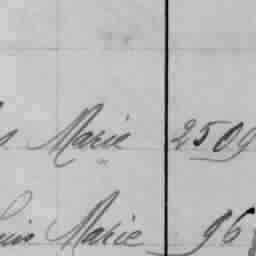 Marie 2509
Marie 96